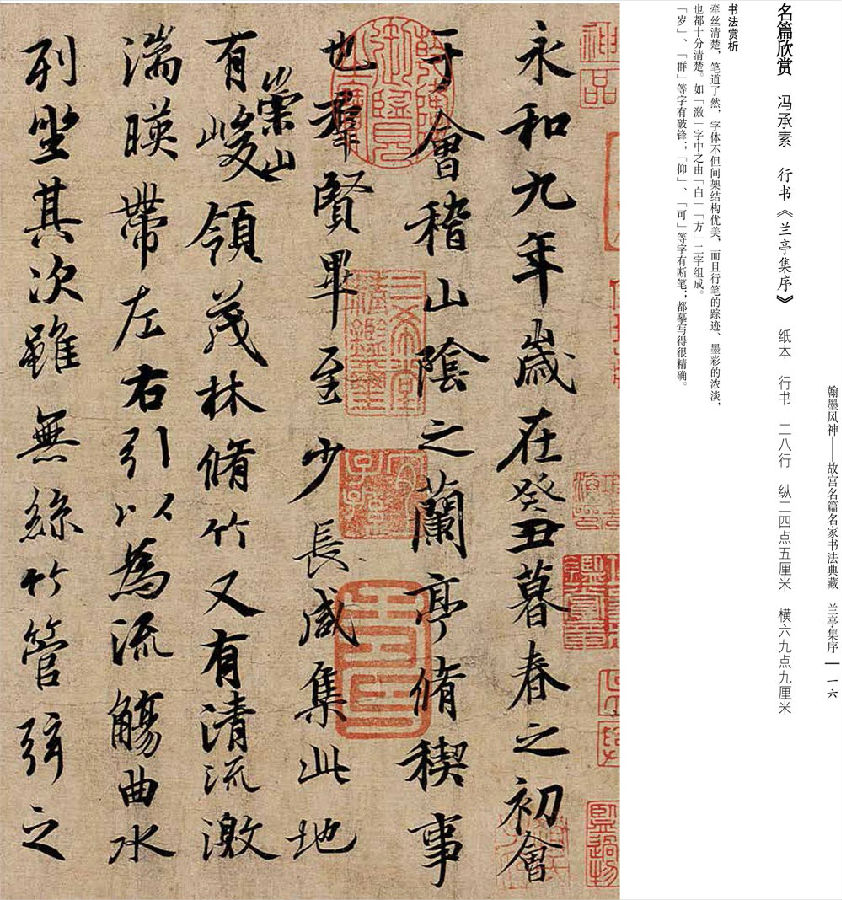 翰墨风神——故宫名篇名家书法典藏 兰亭集序 一六
名篇欣赏 冯承素 行书《兰亭集序》 纸本 行书 二八行 纵二四点五厘米 横六九点九厘米
书法赏析
牵丝清楚，笔道了然，字体不但间架结构优美，而且行笔的踪迹、墨彩的浓淡，
也都十分清楚。如「激」字中之由「白」「方」二字组成。
「岁」、「群」等字有破锋，「仰」、「可」等字有断笔，都摹写得很精确。
神品
永和九年歲在癸丑暮春之初會
于會稽山陰之蘭亭脩稧事
三希堂精鑑璽
宜子孫
也羣賢畢至少長咸集此地
有崇山峻領茂林脩竹又有清流激
湍暎帶左右引以為流觴曲水
列坐其次雖無絲竹管弦之